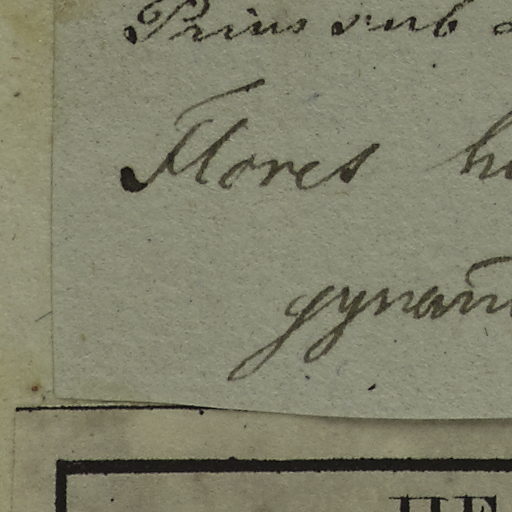 Prius sub
Flores h
gynan
HE